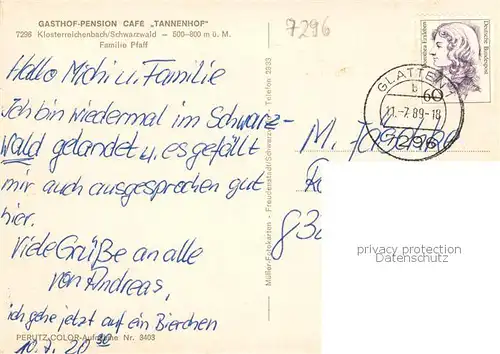 GASTHOF-PENSION CAFE „TANNENHOF"
7296 Klosterreichenbach/Schwarzwald — 500-800 m ü. M.
Familie Pfaff
7296
Hallo Michi u. Familie
Ich bin wiedermal im Schwarz-
wald gelandet u. es gefällt
mir auch ausgesprochen gut
hier.
Viele Grüße an alle
von Andreas,
ich gehe jetzt auf ein Bierchen
10.7. 20 30
PERUTZ-COLOR-Aufnahme Nr. 3403
Müller-Fotokarten - Freudenstadt/Schwarzwald - Telefon 2933
Deutsche Bundespost
60
GLATTEN
11.-7.89-18
7296
M.
83
privacy protection
Datenschutz